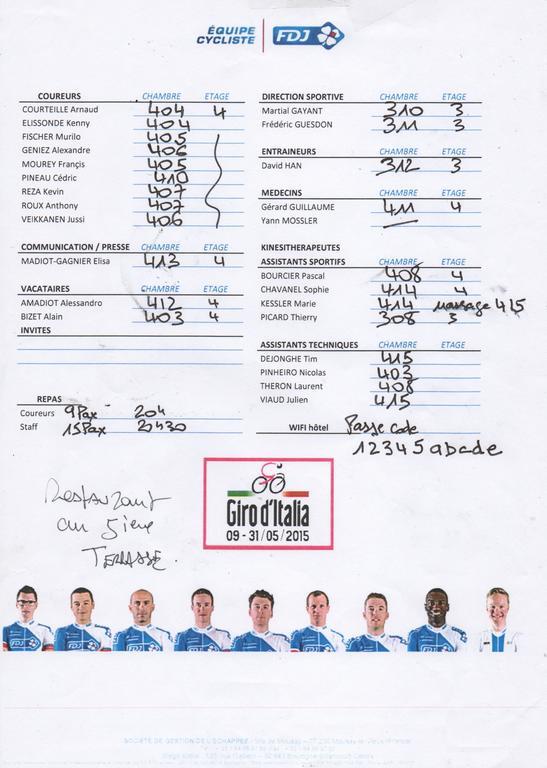 ÉQUIPE
CYCLISTE
FDJ
COUREURS CHAMBRE ETAGE
COURTEILLE Arnaud 404 4
ELISSONDE Kenny 404
FISCHER Murilo 405
GENIEZ Alexandre 406
MOUREY Françis 405
PINEAU Cédric 410
REZA Kevin 407
ROUX Anthony 407
VEIKKANEN Jussi 406
COMMUNICATION / PRESSE CHAMBRE ETAGE
MADIOT-GAGNIER Elisa 413 4
VACATAIRES CHAMBRE ETAGE
AMADIOT Alessandro 412 4
BIZET Alain 403 4
INVITES
REPAS
Coureurs 9Pax 20h
Staff 15Pax 20H30
DIRECTION SPORTIVE CHAMBRE ETAGE
Martial GAYANT 310 3
Frédéric GUESDON 311 3
ENTRAINEURS CHAMBRE ETAGE
David HAN 312 3
MEDECINS CHAMBRE ETAGE
Gérard GUILLAUME 411 4
Yann MOSSLER
KINESITHERAPEUTES
ASSISTANTS SPORTIFS CHAMBRE ETAGE
BOURCIER Pascal 408 4
CHAVANEL Sophie 414 4
KESSLER Marie 414 massage 415
PICARD Thierry 308 3
ASSISTANTS TECHNIQUES CHAMBRE ETAGE
DEJONGHE Tim 415
PINHEIRO Nicolas 403
THERON Laurent 408
VIAUD Julien 415
WIFI hôtel Passe code
12345abcde
Restaurant
au 5ième
TERRASSE.
Giro d'Italia
09 - 31/05/2015
FDJ FDJ FDJ FDJ FDJ FDJ FDJ FDJ